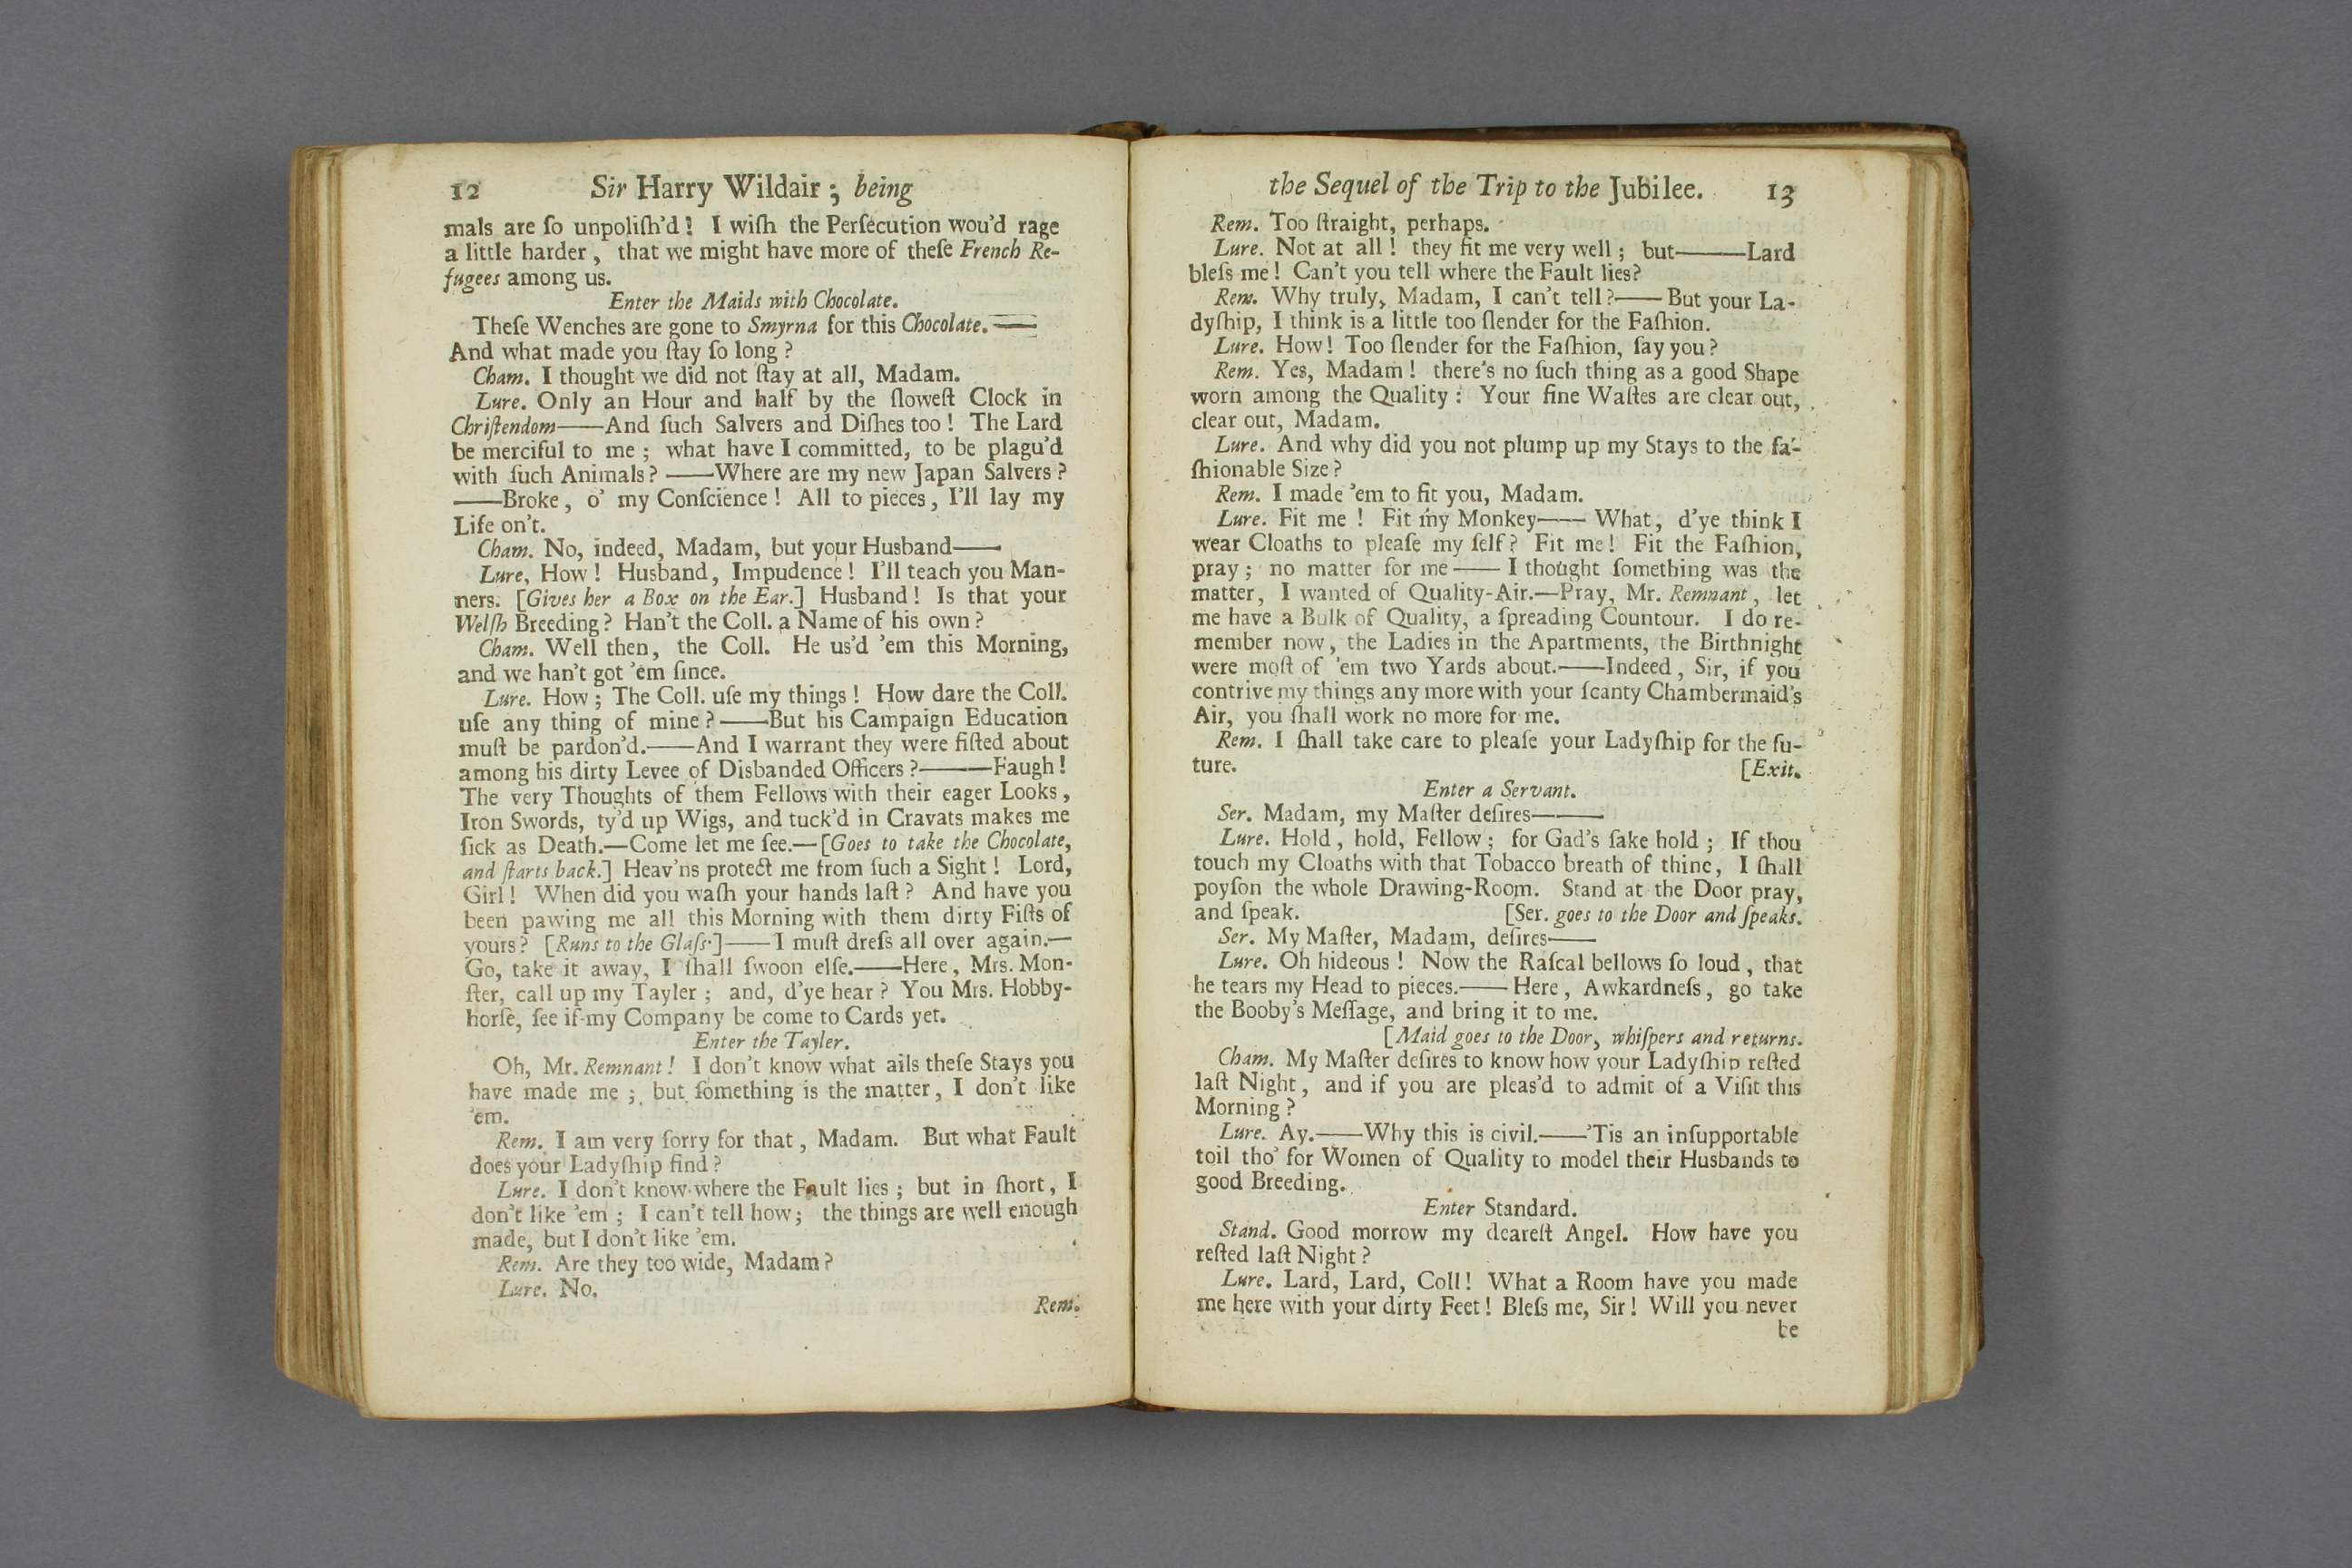 12 Sir Harry Wildair; being
mals are ſo unpoliſh'd! I wiſh the Perſecution wou'd rage
a little harder, that we might have more of theſe French Re-
fugees among us.
Enter the Maids with Chocolate.
Theſe Wenches are gone to Smyrna for this Chocolate.——
And what made you ſtay ſo long?
Cham. I thought we did not ſtay at all, Madam.
Lure. Only an Hour and half by the ſloweſt Clock in
Chriſtendom——And ſuch Salvers and Diſhes too! The Lard
be merciful to me; what have I committed, to be plagu'd
with ſuch Animals?——Where are my new Japan Salvers?
——Broke, o' my Conſcience! All to pieces, I'll lay my
Life on't.
Cham. No, indeed, Madam, but your Husband——
Lure, How! Husband, Impudence! I'll teach you Man-
ners. [Gives her a Box on the Ear.] Husband! Is that your
Welſh Breeding? Han't the Coll. a Name of his own?
Cham. Well then, the Coll. He us'd 'em this Morning,
and we han't got 'em ſince.
Lure. How; The Coll. uſe my things! How dare the Coll.
uſe any thing of mine?——But his Campaign Education
muſt be pardon'd.——And I warrant they were fiſted about
among his dirty Levee of Disbanded Officers?———Faugh!
The very Thoughts of them Fellows with their eager Looks,
Iron Swords, ty'd up Wigs, and tuck'd in Cravats makes me
ſick as Death.—Come let me ſee.—[Goes to take the Chocolate,
and ſtarts back.] Heav'ns protect me from ſuch a Sight! Lord,
Girl! When did you waſh your hands laſt? And have you
been pawing me all this Morning with them dirty Fiſts of
yours? [Runs to the Glaſs.]——I muſt dreſs all over again.—
Go, take it away, I ſhall ſwoon elſe.——Here, Mrs. Mon-
ſter, call up my Tayler; and, d'ye hear? You Mrs. Hobby-
horſe, ſee if my Company be come to Cards yet.
Enter the Tayler.
Oh, Mr. Remnant! I don't know what ails theſe Stays you
have made me; but ſomething is the matter, I don't like
'em.
Rem. I am very ſorry for that, Madam. But what Fault
does your Ladyſhip find?
Lure. I don't know where the Fault lies; but in ſhort, I
don't like 'em; I can't tell how; the things are well enough
made, but I don't like 'em.
Rem. Are they too wide, Madam?
Lure. No.
Rem.
the Sequel of the Trip to the Jubilee. 13
Rem. Too ſtraight, perhaps.
Lure. Not at all! they fit me very well; but———Lard
bleſs me! Can't you tell where the Fault lies?
Rem. Why truly, Madam, I can't tell?——But your La-
dyſhip, I think is a little too ſlender for the Faſhion.
Lure. How! Too ſlender for the Faſhion, ſay you?
Rem. Yes, Madam! there's no ſuch thing as a good Shape
worn among the Quality: Your fine Waſtes are clear out,
clear out, Madam.
Lure. And why did you not plump up my Stays to the fa-
ſhionable Size?
Rem. I made 'em to fit you, Madam.
Lure. Fit me! Fit my Monkey—— What, d'ye think I
wear Cloaths to pleaſe my ſelf? Fit me! Fit the Faſhion,
pray; no matter for me—— I thought ſomething was the
matter, I wanted of Quality-Air.—Pray, Mr. Remnant, let
me have a Bulk of Quality, a ſpreading Countour. I do re-
member now, the Ladies in the Apartments, the Birthnight
were moſt of 'em two Yards about.——Indeed, Sir, if you
contrive my things any more with your ſcanty Chambermaid's
Air, you ſhall work no more for me.
Rem. I ſhall take care to pleaſe your Ladyſhip for the fu-
ture. [Exit.
Enter a Servant.
Ser. Madam, my Maſter deſires———
Lure. Hold, hold, Fellow; for Gad's ſake hold; If thou
touch my Cloaths with that Tobacco breath of thine, I ſhall
poyſon the whole Drawing-Room. Stand at the Door pray,
and ſpeak. [Ser. goes to the Door and ſpeaks.
Ser. My Maſter, Madam, deſires——
Lure. Oh hideous! Now the Raſcal bellows ſo loud, that
he tears my Head to pieces.—— Here, Awkardneſs, go take
the Booby's Meſſage, and bring it to me.
[Maid goes to the Door, whiſpers and returns.
Cham. My Maſter deſires to know how your Ladyſhip reſted
laſt Night, and if you are pleas'd to admit of a Viſit this
Morning?
Lure. Ay.——Why this is civil.——'Tis an inſupportable
toil tho' for Women of Quality to model their Husbands to
good Breeding.
Enter Standard.
Stand. Good morrow my deareſt Angel. How have you
reſted laſt Night?
Lure. Lard, Lard, Coll! What a Room have you made
me here with your dirty Feet! Bleſs me, Sir! Will you never
be